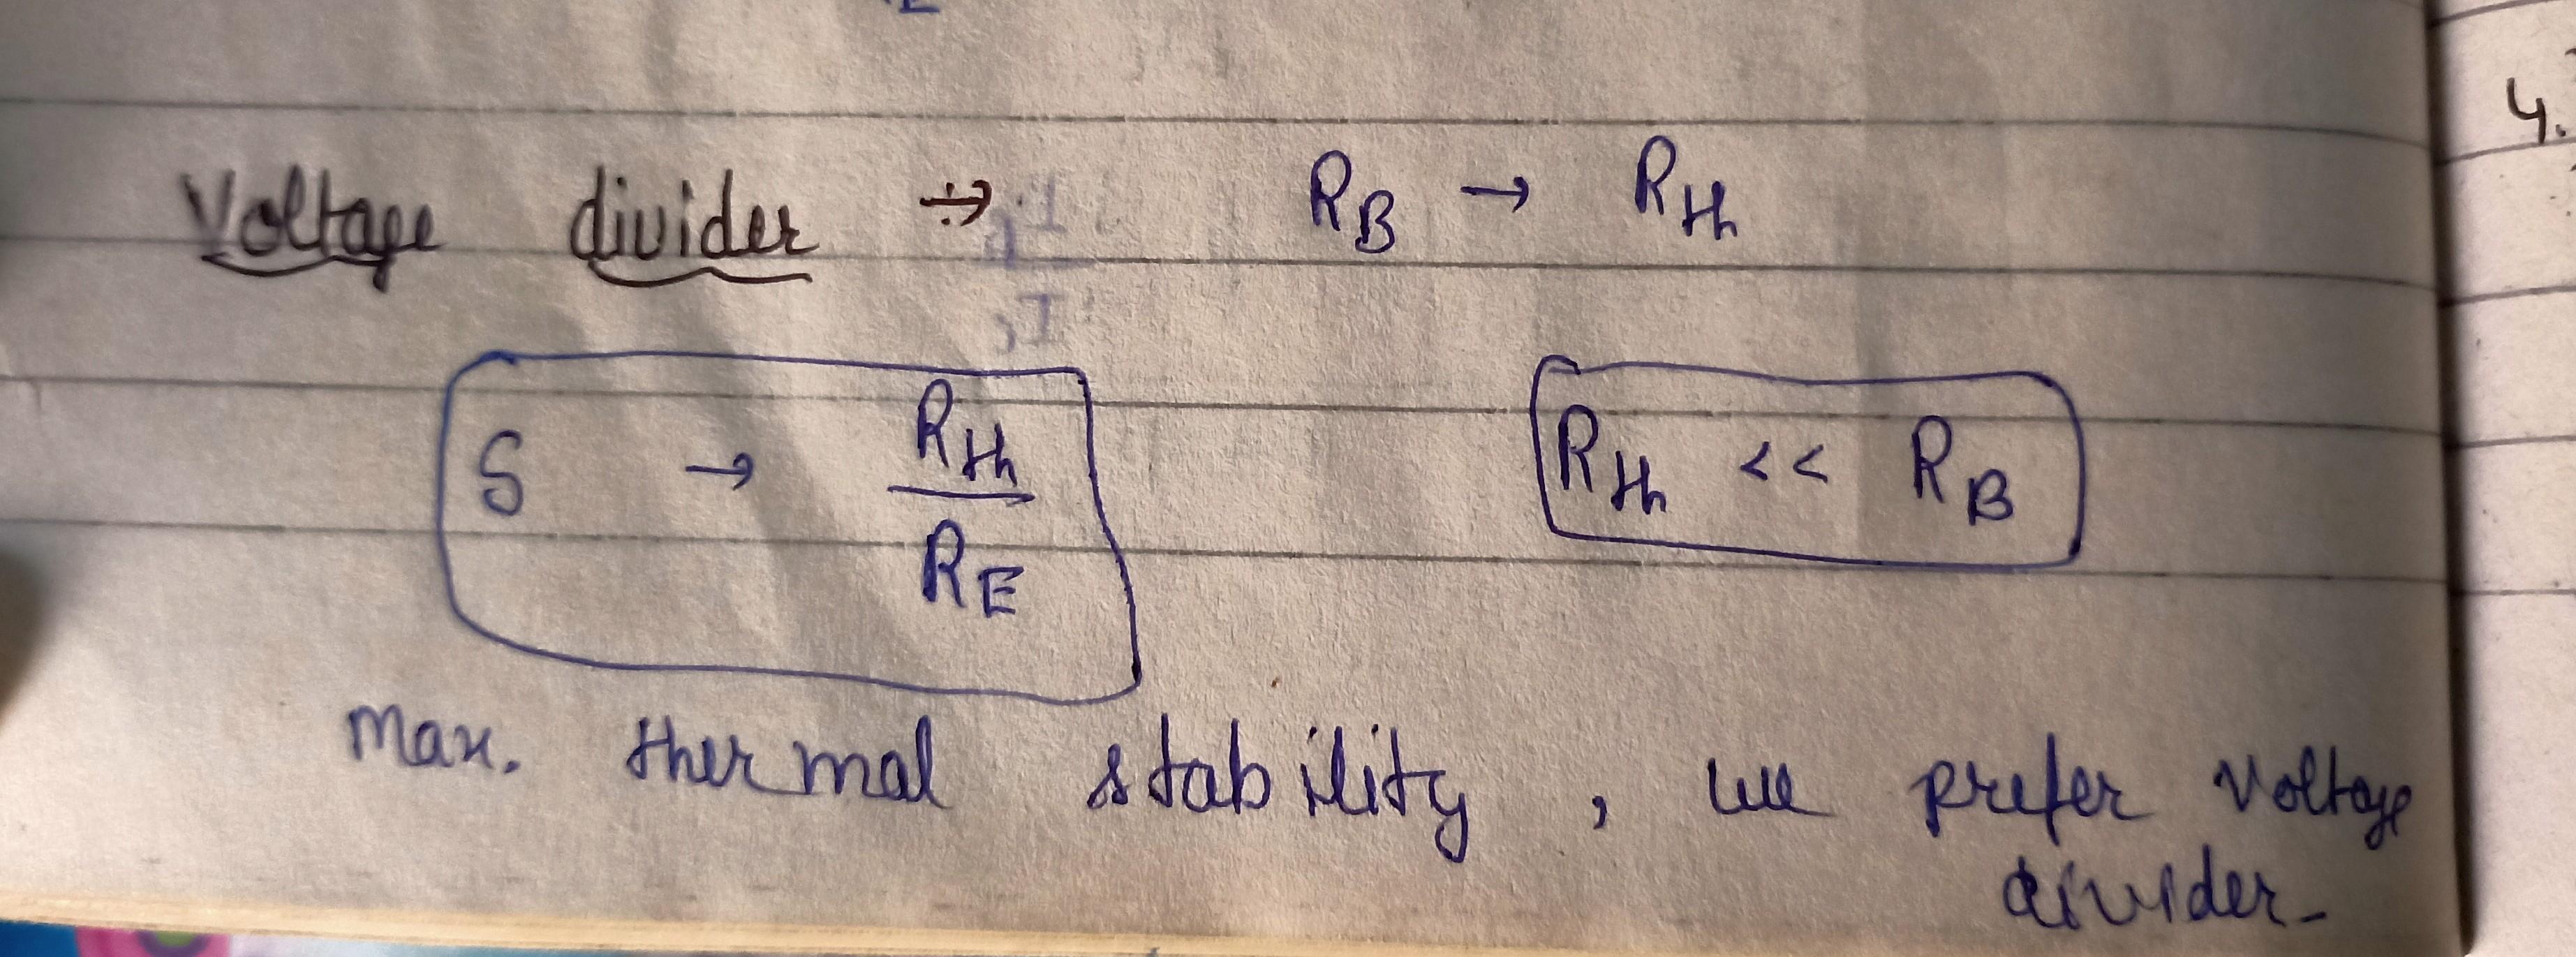 Voltage divider ÷→ R_B → R_th
S → R_th / R_E
R_th << R_B
max. thermal stability, we prefer voltage
divider.
4.